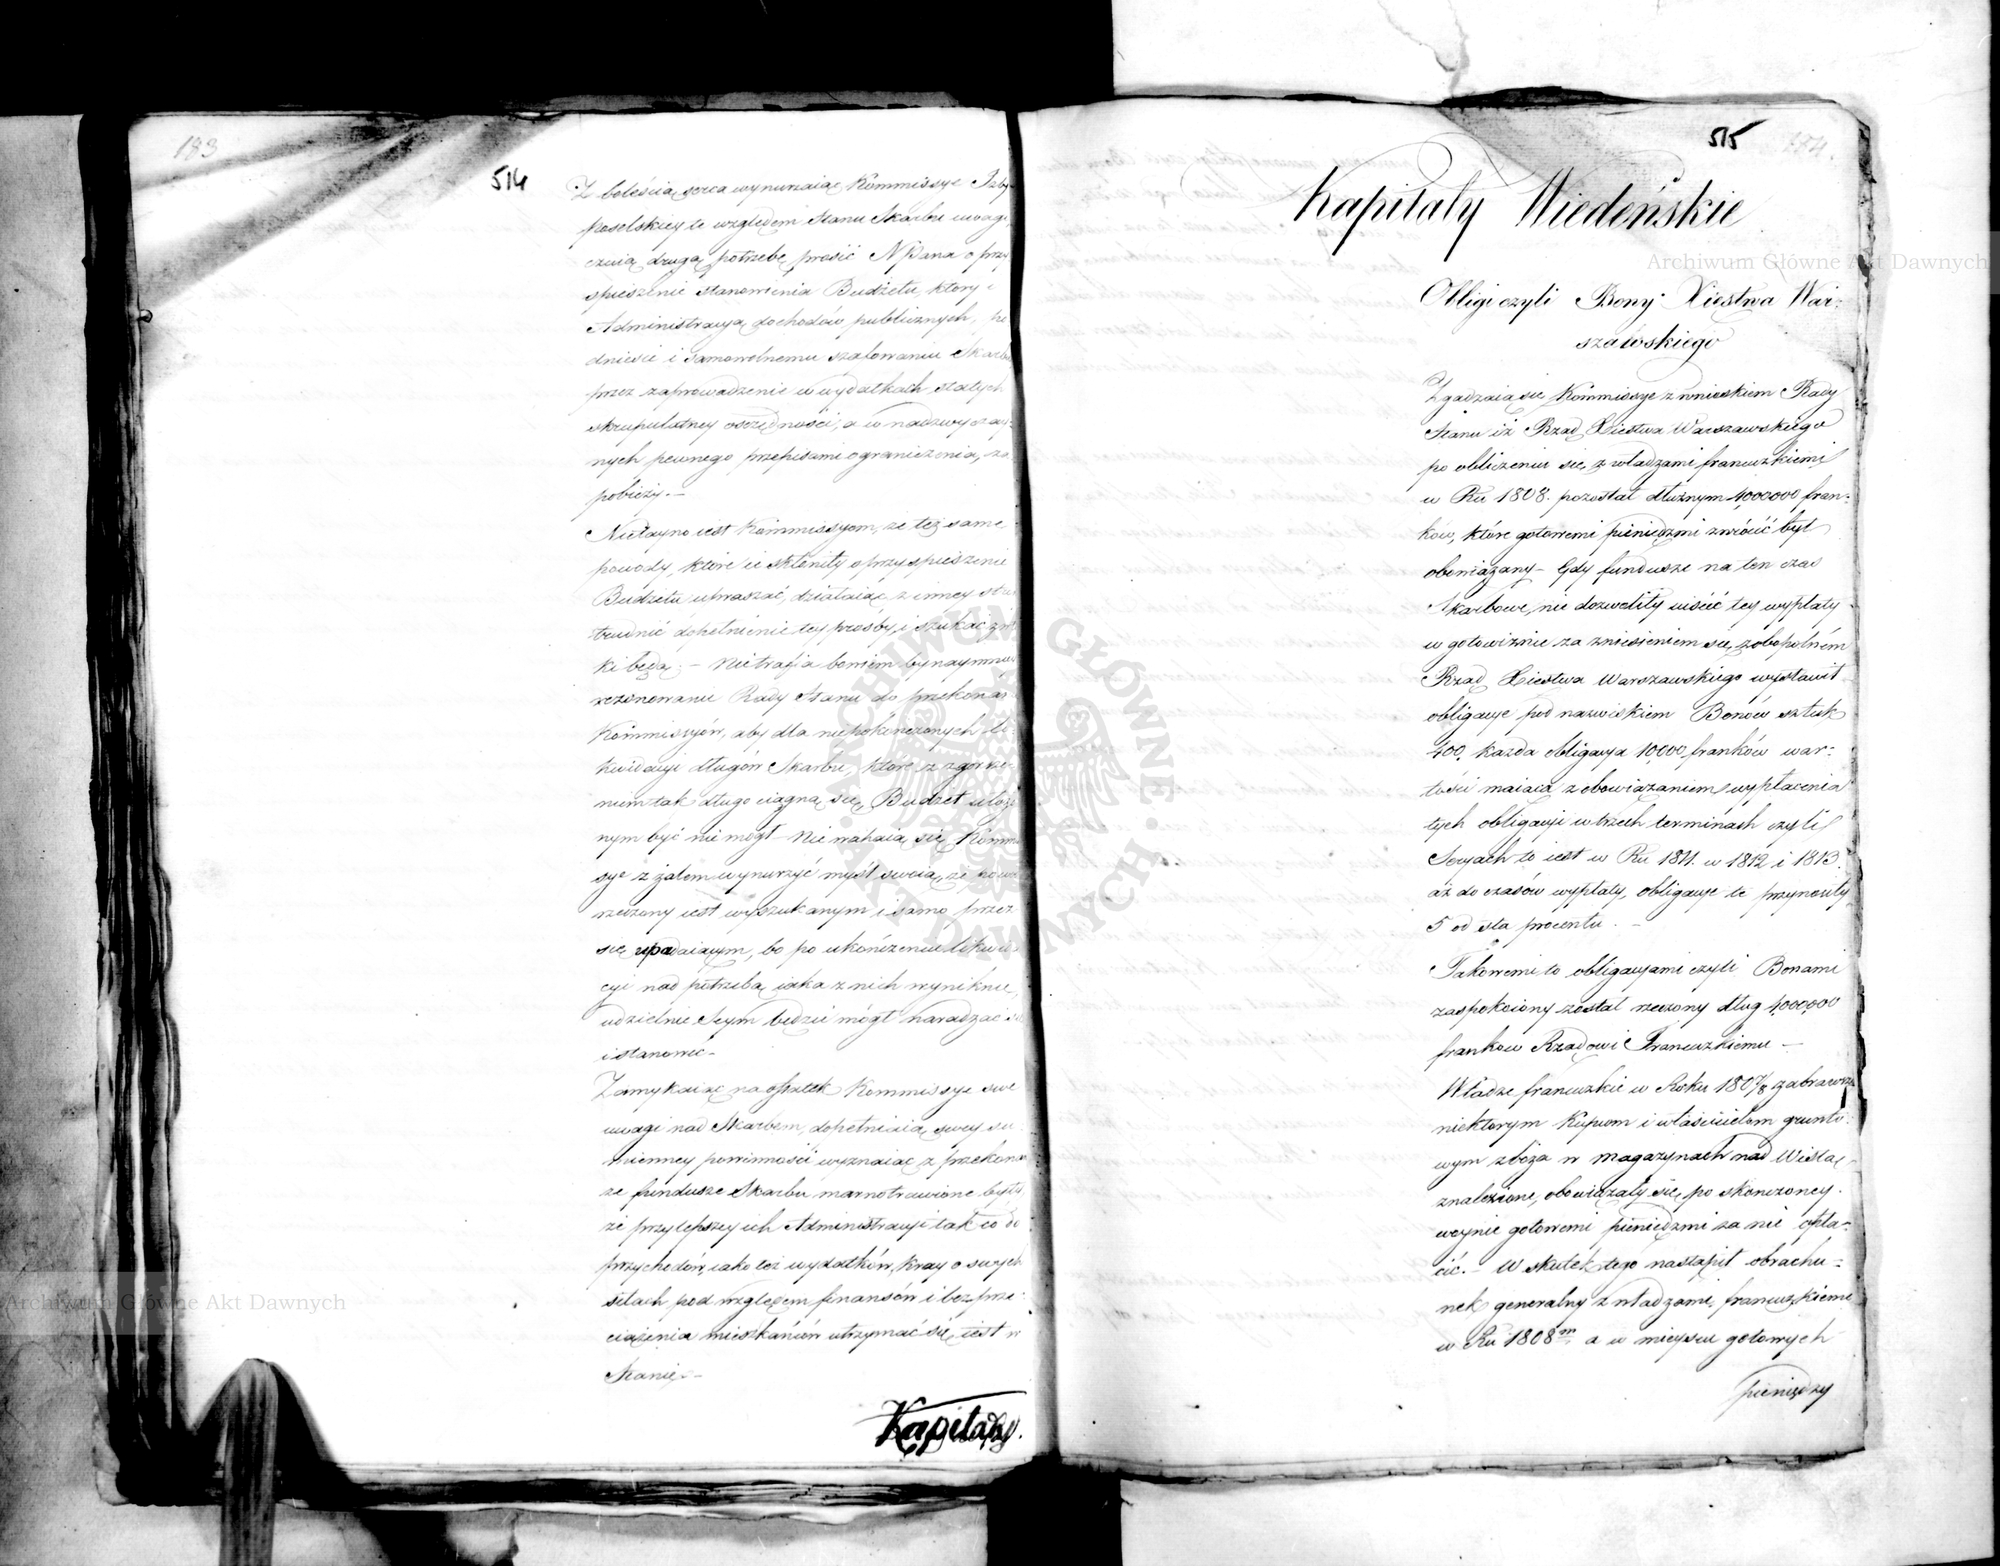 183
514
Z boleścią serca wynurzaiąc Kommissye Izby
poselskiey te względem stanu Skarbu uwagi,
czuią drugą potrzebę prosić NPana o przy
spieszenie stanowienia Budżetu, który i
Administracyą dochodów publicznych, po
dniesie i samowolnemu szafowaniu Skarbu
przez zaprowadzenie w wydatkach stałych
skrupulatney oszczędności, a w nadzwyczay-
nych pewnego przepisami ograniczenia, za
pobieży. —
Nietayno iest Kommissyom, że też same
powody, które ie skłoniły o przyspieszenie
Budżetu upraszać, działaiąc z inney stro
trudnić dopełnienie tey prośby, i szukać
ki będą. — Nie trafia bowiem bynaymniey
rezonowanie Rady Stanu do przekonań
Kommissyów, aby dla niepokończonych li-
kwidacyi długów Skarbu, które z zgorsze-
niem tak długo ciągną się, Budżet ułożo
nym być nie mógł — Nie wahaią się Kommis
sye z żalem wynurzyć myśl swoią, że powód
rzeczony iest wyszukanym i samo przez
się upadaiącym, bo po ukończeniu likwida-
cyi nad potrzebą iaka z nich wyniknie,
udzielnie Seym będzie mógł naradzać się
i stanowić —
Zamykaiąc na ostatek Kommissye swe
uwagi nad Skarbem, dopełniaią swey su
mienney powinności wyznaiąc z przekonania
że fundusze Skarbu marnotrawione były,
że przy lepszey ich Administracyi tak co do
przychodów, iako też wydatków, kray o swych
siłach pod względem finansów i bez prze-
ciążenia mieszkańców utrzymać się iest w
Stanie. —
Kapitały.
515
184.
Kapitały Wiedeńskie
Obligi czyli Bony Xięstwa War-
szawskiego
Zgadzaią się Kommissye z wnioskiem Rady
Stanu iż Rząd Xięstwa Warszawskiego
po obliczeniu się z władzami francuzkiemi
w Ru 1808. pozostał dłużnym 4,000,000 fran-
ków, które gotowemi pieniędzmi zwrócić był
obowiązany — Gdy fundusze na ten czas
Skarbowe, nie dozwoliły uiścić tey wypłaty
w gotowiznie za zniesieniem się zobopólném
Rząd Xięstwa Warszawskiego wystawił
obligacye pod nazwiskiem Bonów sztuk
400, każda obligacya 10,000 franków war-
tości maiąca z obowiązaniem wypłacenia
tych obligacyi w trzech terminach czyli
Seryach to iest w Ru 1811. w 1812 i 1813.
aż do czasów wypłaty, obligacye te przynosiły
5 od sta procentu. —
Takowemi to obligacyami czyli Bonami
zaspokoiony został rzeczony dług 4,000,000
franków Rządowi Francuzkiemu —
Władze francuzkie w Roku 1807/8 zabrawszy
niektorym Kupcom i właścicielom grunto-
wym zboża w magazynach nad Wisłą,
znalezione, obowiązały się po skończoney
woynie gotowemi pieniędzmi za nie opła-
cić. — W skutek tego nastąpił obrachu-
nek generalny z władzami francuzkiemi
w Ru 1808m a w mieyscu gotowych
pieniędzy
Archiwum Główne Akt Dawnych
Archiwum Główne Akt Dawnych
ARCHIWUM GŁÓWNE AKT DAWNYCH